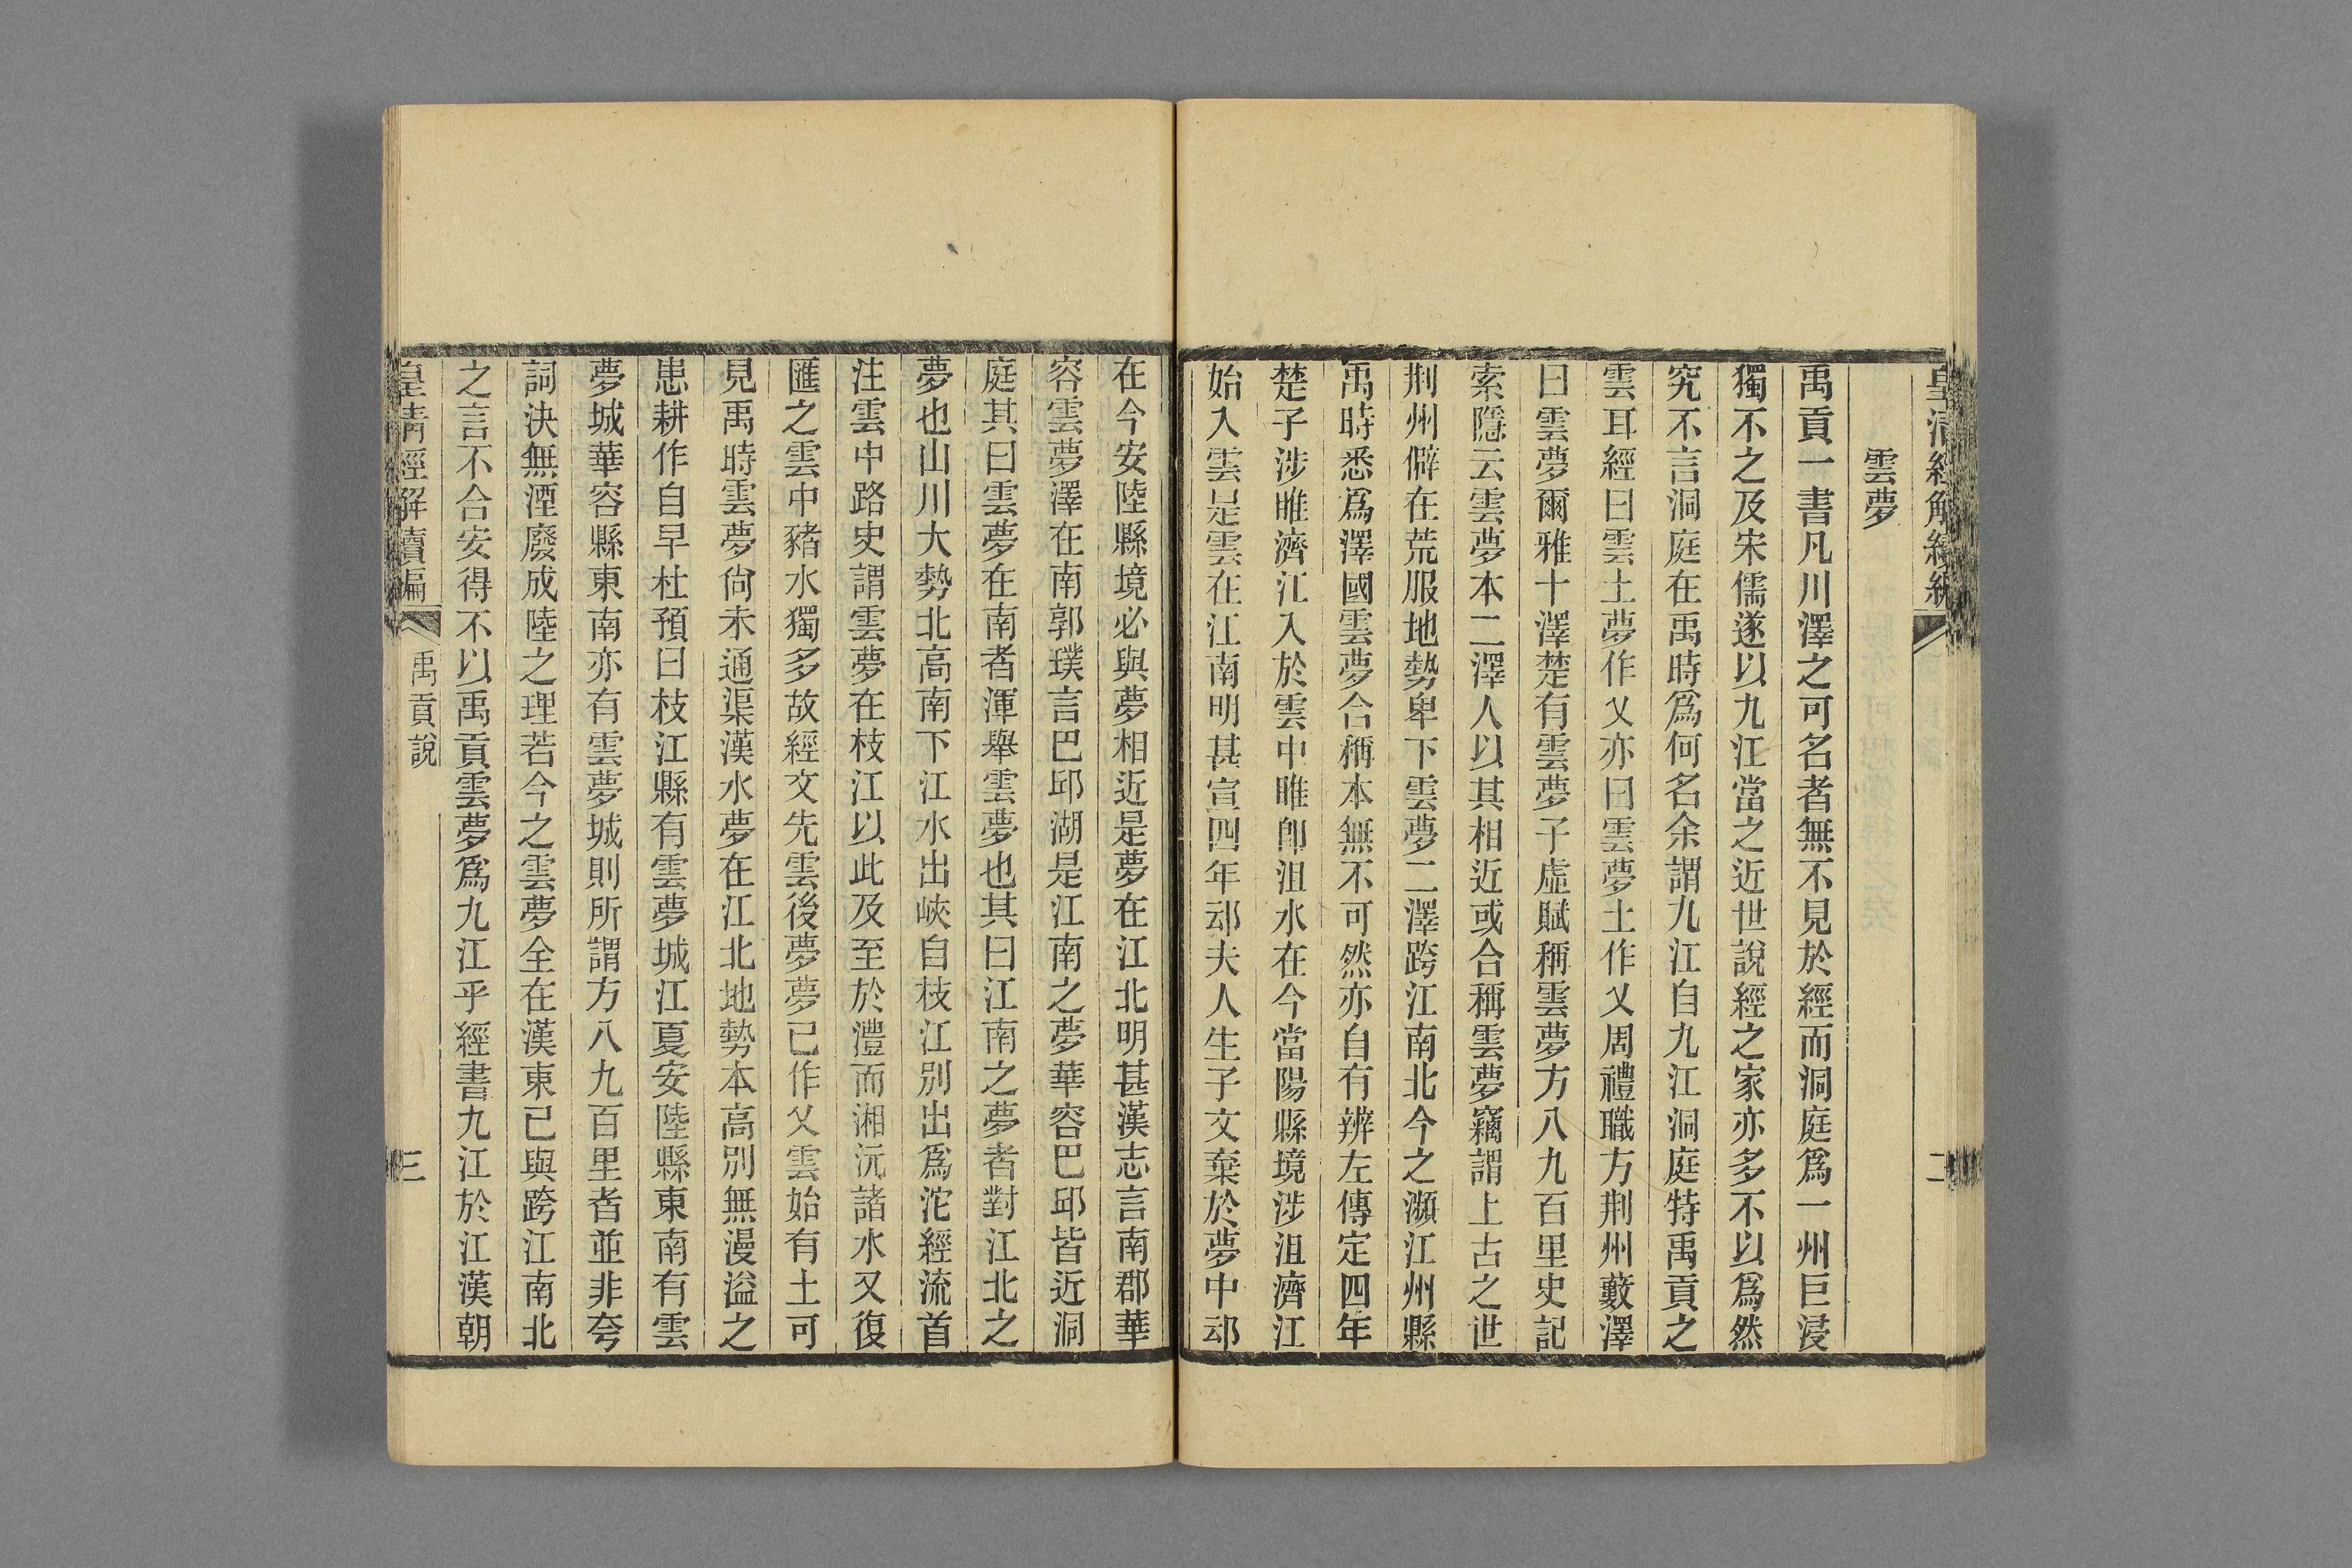 皇清經解續編
二
雲夢
禹貢一書凡川澤之可名者無不見於經而洞庭爲一州巨浸
獨不之及宋儒遂以九江當之近世說經之家亦多不以爲然
究不言洞庭在禹時爲何名余謂九江自九江洞庭特禹貢之
雲耳經曰雲土夢作乂亦曰雲夢土作乂周禮職方荆州藪澤
曰雲夢爾雅十澤楚有雲夢子虛賦稱雲夢方八九百里史記
索隱云雲夢本二澤人以其相近或合稱雲夢竊謂上古之世
荆州僻在荒服地勢卑下雲夢二澤跨江南北今之瀕江州縣
禹時悉爲澤國雲夢合稱本無不可然亦自有辨左傳定四年
楚子涉睢濟江入於雲中睢卽沮水在今當陽縣境涉沮濟江
始入雲是雲在江南明甚宣四年䢵夫人生子文棄於夢中䢵
在今安陸縣境必與夢相近是夢在江北明甚漢志言南郡華
容雲夢澤在南郭璞言巴邱湖是江南之夢華容巴邱皆近洞
庭其曰雲夢在南者渾舉雲夢也其曰江南之夢者對江北之
夢也山川大勢北高南下江水出峽自枝江別出爲沱經流首
注雲中路史謂雲夢在枝江以此及至於澧而湘沅諸水又復
匯之雲中豬水獨多故經文先雲後夢夢已作乂雲始有土可
見禹時雲夢尙未通渠漢水夢在江北地勢本高別無漫溢之
患耕作自早杜預曰枝江縣有雲夢城江夏安陸縣東南有雲
夢城華容縣東南亦有雲夢城則所謂方八九百里者並非夸
詞決無湮廢成陸之理若今之雲夢全在漢東已與跨江南北
之言不合安得不以禹貢雲夢爲九江乎經書九江於江漢朝
皇清經解續編
禹貢說
三